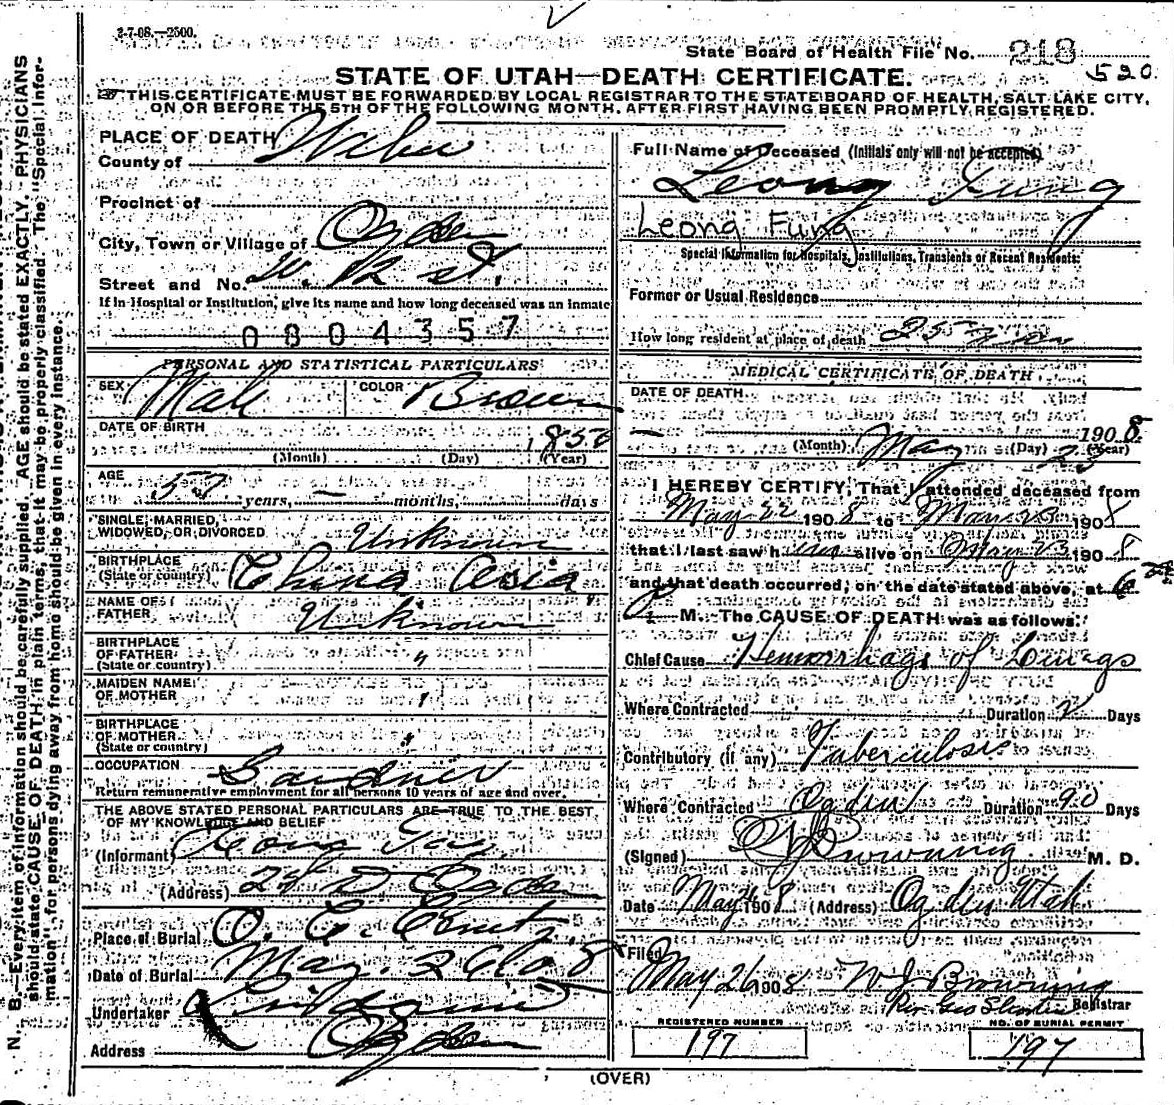 2-7-08.—2500.
State Board of Health File No. 218
520
STATE OF UTAH—DEATH CERTIFICATE.
THIS CERTIFICATE MUST BE FORWARDED BY LOCAL REGISTRAR TO THE STATE BOARD OF HEALTH, SALT LAKE CITY,
ON OR BEFORE THE 5TH OF THE FOLLOWING MONTH, AFTER FIRST HAVING BEEN PROMPTLY REGISTERED.
N. B.—Every item of information should be carefully supplied. AGE should be stated EXACTLY. PHYSICIANS
should state CAUSE OF DEATH in plain terms, that it may be properly classified. The "Special Infor-
mation" for persons dying away from home should be given in every instance.
PLACE OF DEATH
County of Weber
Precinct of
City, Town or Village of Ogden
Street and No. W. 12 st.
If in Hospital or Institution, give its name and how long deceased was an inmate
0804357
PERSONAL AND STATISTICAL PARTICULARS
SEX Male COLOR Brown
DATE OF BIRTH 1850
(Month) (Day) (Year)
AGE years, — months, days
SINGLE, MARRIED,
WIDOWED, OR DIVORCED Unknown
BIRTHPLACE
(State or country) China Asia
NAME OF
FATHER Unknown
BIRTHPLACE
OF FATHER "
(State or country)
MAIDEN NAME
OF MOTHER "
BIRTHPLACE
OF MOTHER "
(State or country)
OCCUPATION Gardner
Return remunerative employment for all persons 10 years of age and over.
THE ABOVE STATED PERSONAL PARTICULARS ARE TRUE TO THE BEST
OF MY KNOWLEDGE AND BELIEF
(Informant)
(Address) Ogden
Place of Burial O. C. Cemty
Date of Burial May. 26 08
Undertaker
Address Ogden
Full Name of Deceased (Initials only will not be accepted)
Leong Fung
Leong Fung
Special Information for Hospitals, Institutions, Transients or Recent Residents:
Former or Usual Residence
How long resident at place of death 25 years
MEDICAL CERTIFICATE OF DEATH
DATE OF DEATH
— May 23 1908
(Month) (Day) (Year)
I HEREBY CERTIFY, That I attended deceased from
May 22 1908 to May 23 1908
that I last saw him alive on May 23 1908
and that death occurred, on the date stated above, at 6
P. M. The CAUSE OF DEATH was as follows:
Chief Cause Hemorrhage of Lungs
Where Contracted Duration 2 Days
Contributory (if any) Tuberculosis
Where Contracted Ogden Duration 90 Days
(Signed) Browning M. D.
Date May 1908 (Address) Ogden Utah
Filed
May 26 1908 W J Browning
Per Geo Registrar
REGISTERED NUMBER
197
NO. OF BURIAL PERMIT
197
(OVER)